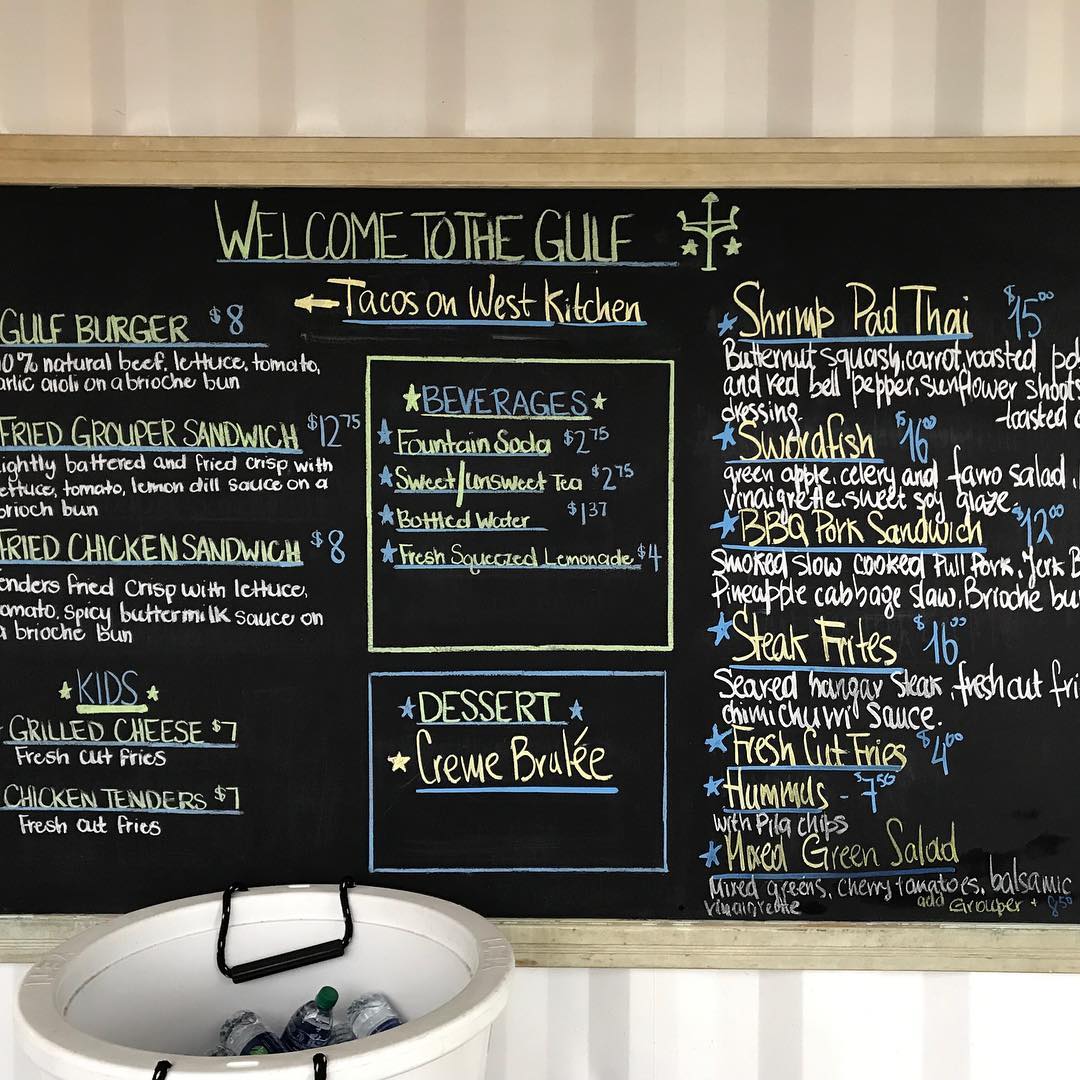 WELCOME TO THE GULF
←Tacos on West Kitchen
GULF BURGER $8
0% natural beef, lettuce, tomato,
arlic aioli on a brioche bun
FRIED GROUPER SANDWICH $12.75
ightly battered and fried crisp with
ettuce, tomato, lemon dill sauce on a
brioch bun
FRIED CHICKEN SANDWICH $8
enders fried crisp with lettuce,
omato, spicy buttermilk sauce on
a brioche bun
★KIDS★
GRILLED CHEESE $7
Fresh cut fries
CHICKEN TENDERS $7
Fresh cut fries
★BEVERAGES★
★Fountain Soda $2.75
★Sweet/unsweet Tea $2.75
★Bottled Water $1.37
★Fresh Squeezed Lemonade $4
★DESSERT★
★Creme Brulée
★Shrimp Pad Thai $15.00
Butternut squash, carrot, roasted
and red bell pepper, sunflower shoots
dressing. -toasted
★Swordfish $16.00
green apple, celery and farro salad,
vinaigrette, sweet soy glaze.
★BBQ Pork Sandwich $12.00
Smoked slow cooked Pull Pork, Jerk B
Pineapple cabbage slaw, Brioche bu
★Steak Frites $16.00
Seared hangar Steak, fresh cut fri
chimichurri Sauce.
★Fresh Cut Fries $4.00
★Hummus - $7.50
with Pita chips
★Mixed Green Salad
Mixed greens, cherry tomatoes, balsamic
vinaigrette add Grouper + 8.50